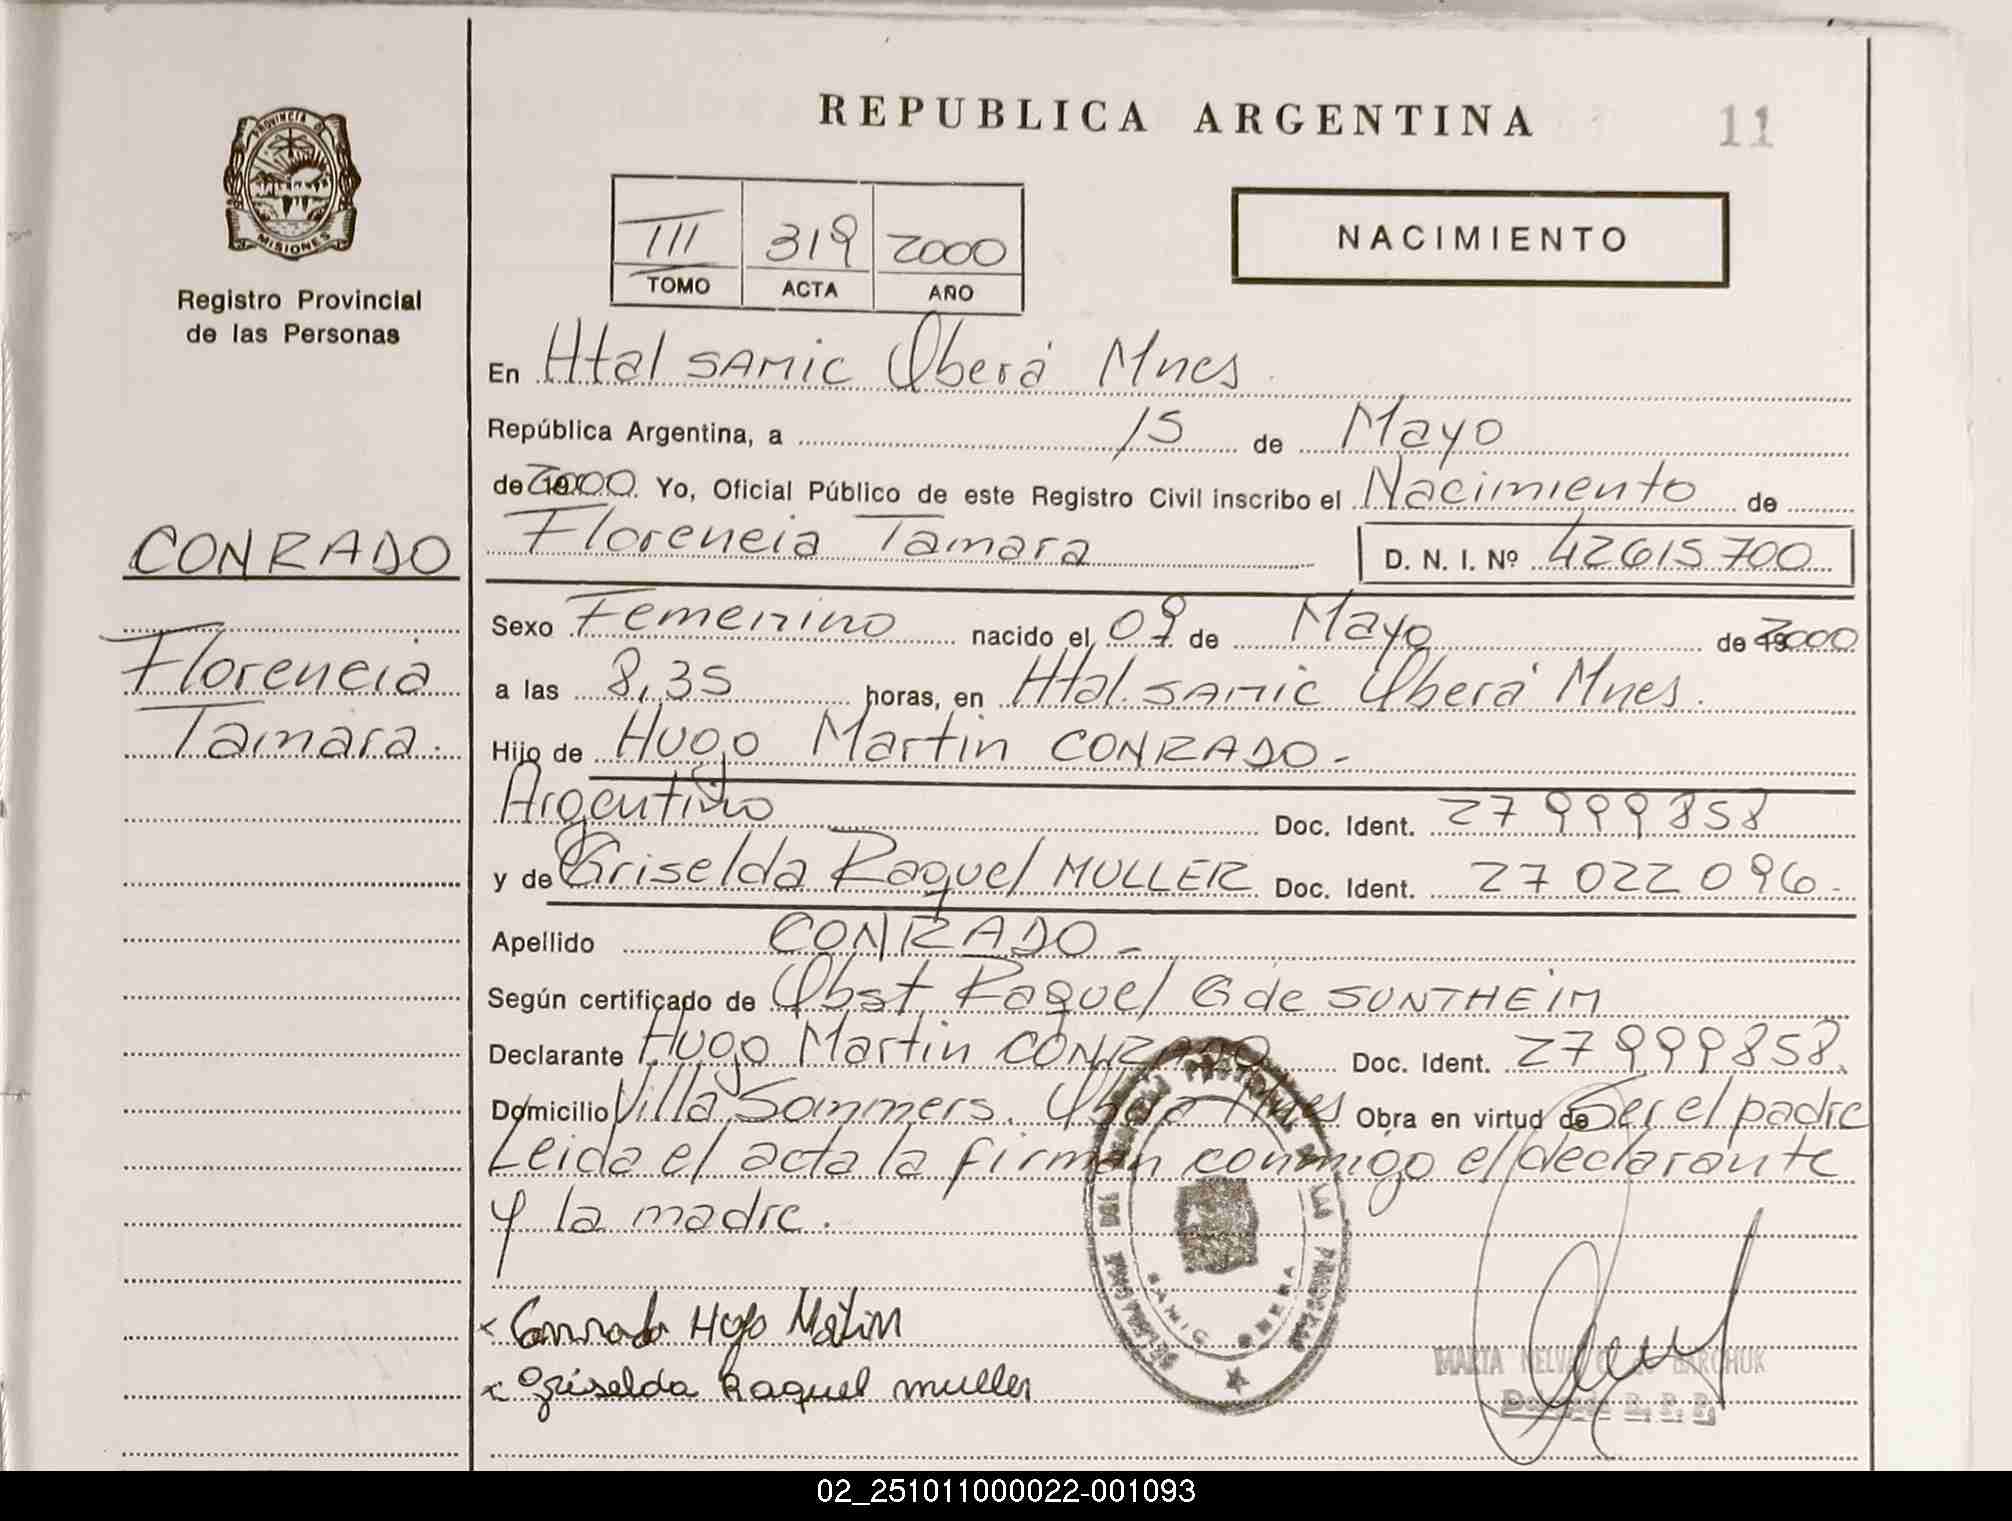 REPUBLICA ARGENTINA
11
PROVINCIA D
MISIONES
Registro Provincial
de las Personas
III 319 2000
TOMO ACTA AÑO
NACIMIENTO
En Htal SAMIC Oberá Mnes.
República Argentina, a 15 de Mayo
de 2000 Yo, Oficial Público de este Registro Civil inscribo el Nacimiento de
Florencia Tamara D. N. I. Nº 42615700
CONRADO
Florencia
Tamara.
Sexo Femenino nacido el 09 de Mayo de 2000
a las 8,35 horas, en Htal. SAMIC Oberá Mnes.
Hijo de Hugo Martin CONRADO -
Argentino Doc. Ident. 27 999 858
y de Griselda Raquel MULLER Doc. Ident. 27 022 096.
Apellido CONRADO -
Según certificado de Obst Raquel G de SUNTHEIM
Declarante Hugo Martin CONRADO Doc. Ident. 27 999 858.
Domicilio Villa Sommers. Oberá Mnes Obra en virtud de Ser el padre
Leida el acta la firman conmigo el declarante
y la madre.
Conrado Hugo Matin
Griselda Raquel muller
SAMIC OBERA
MARTA NELVA
R. P. P.
02_251011000022-001093